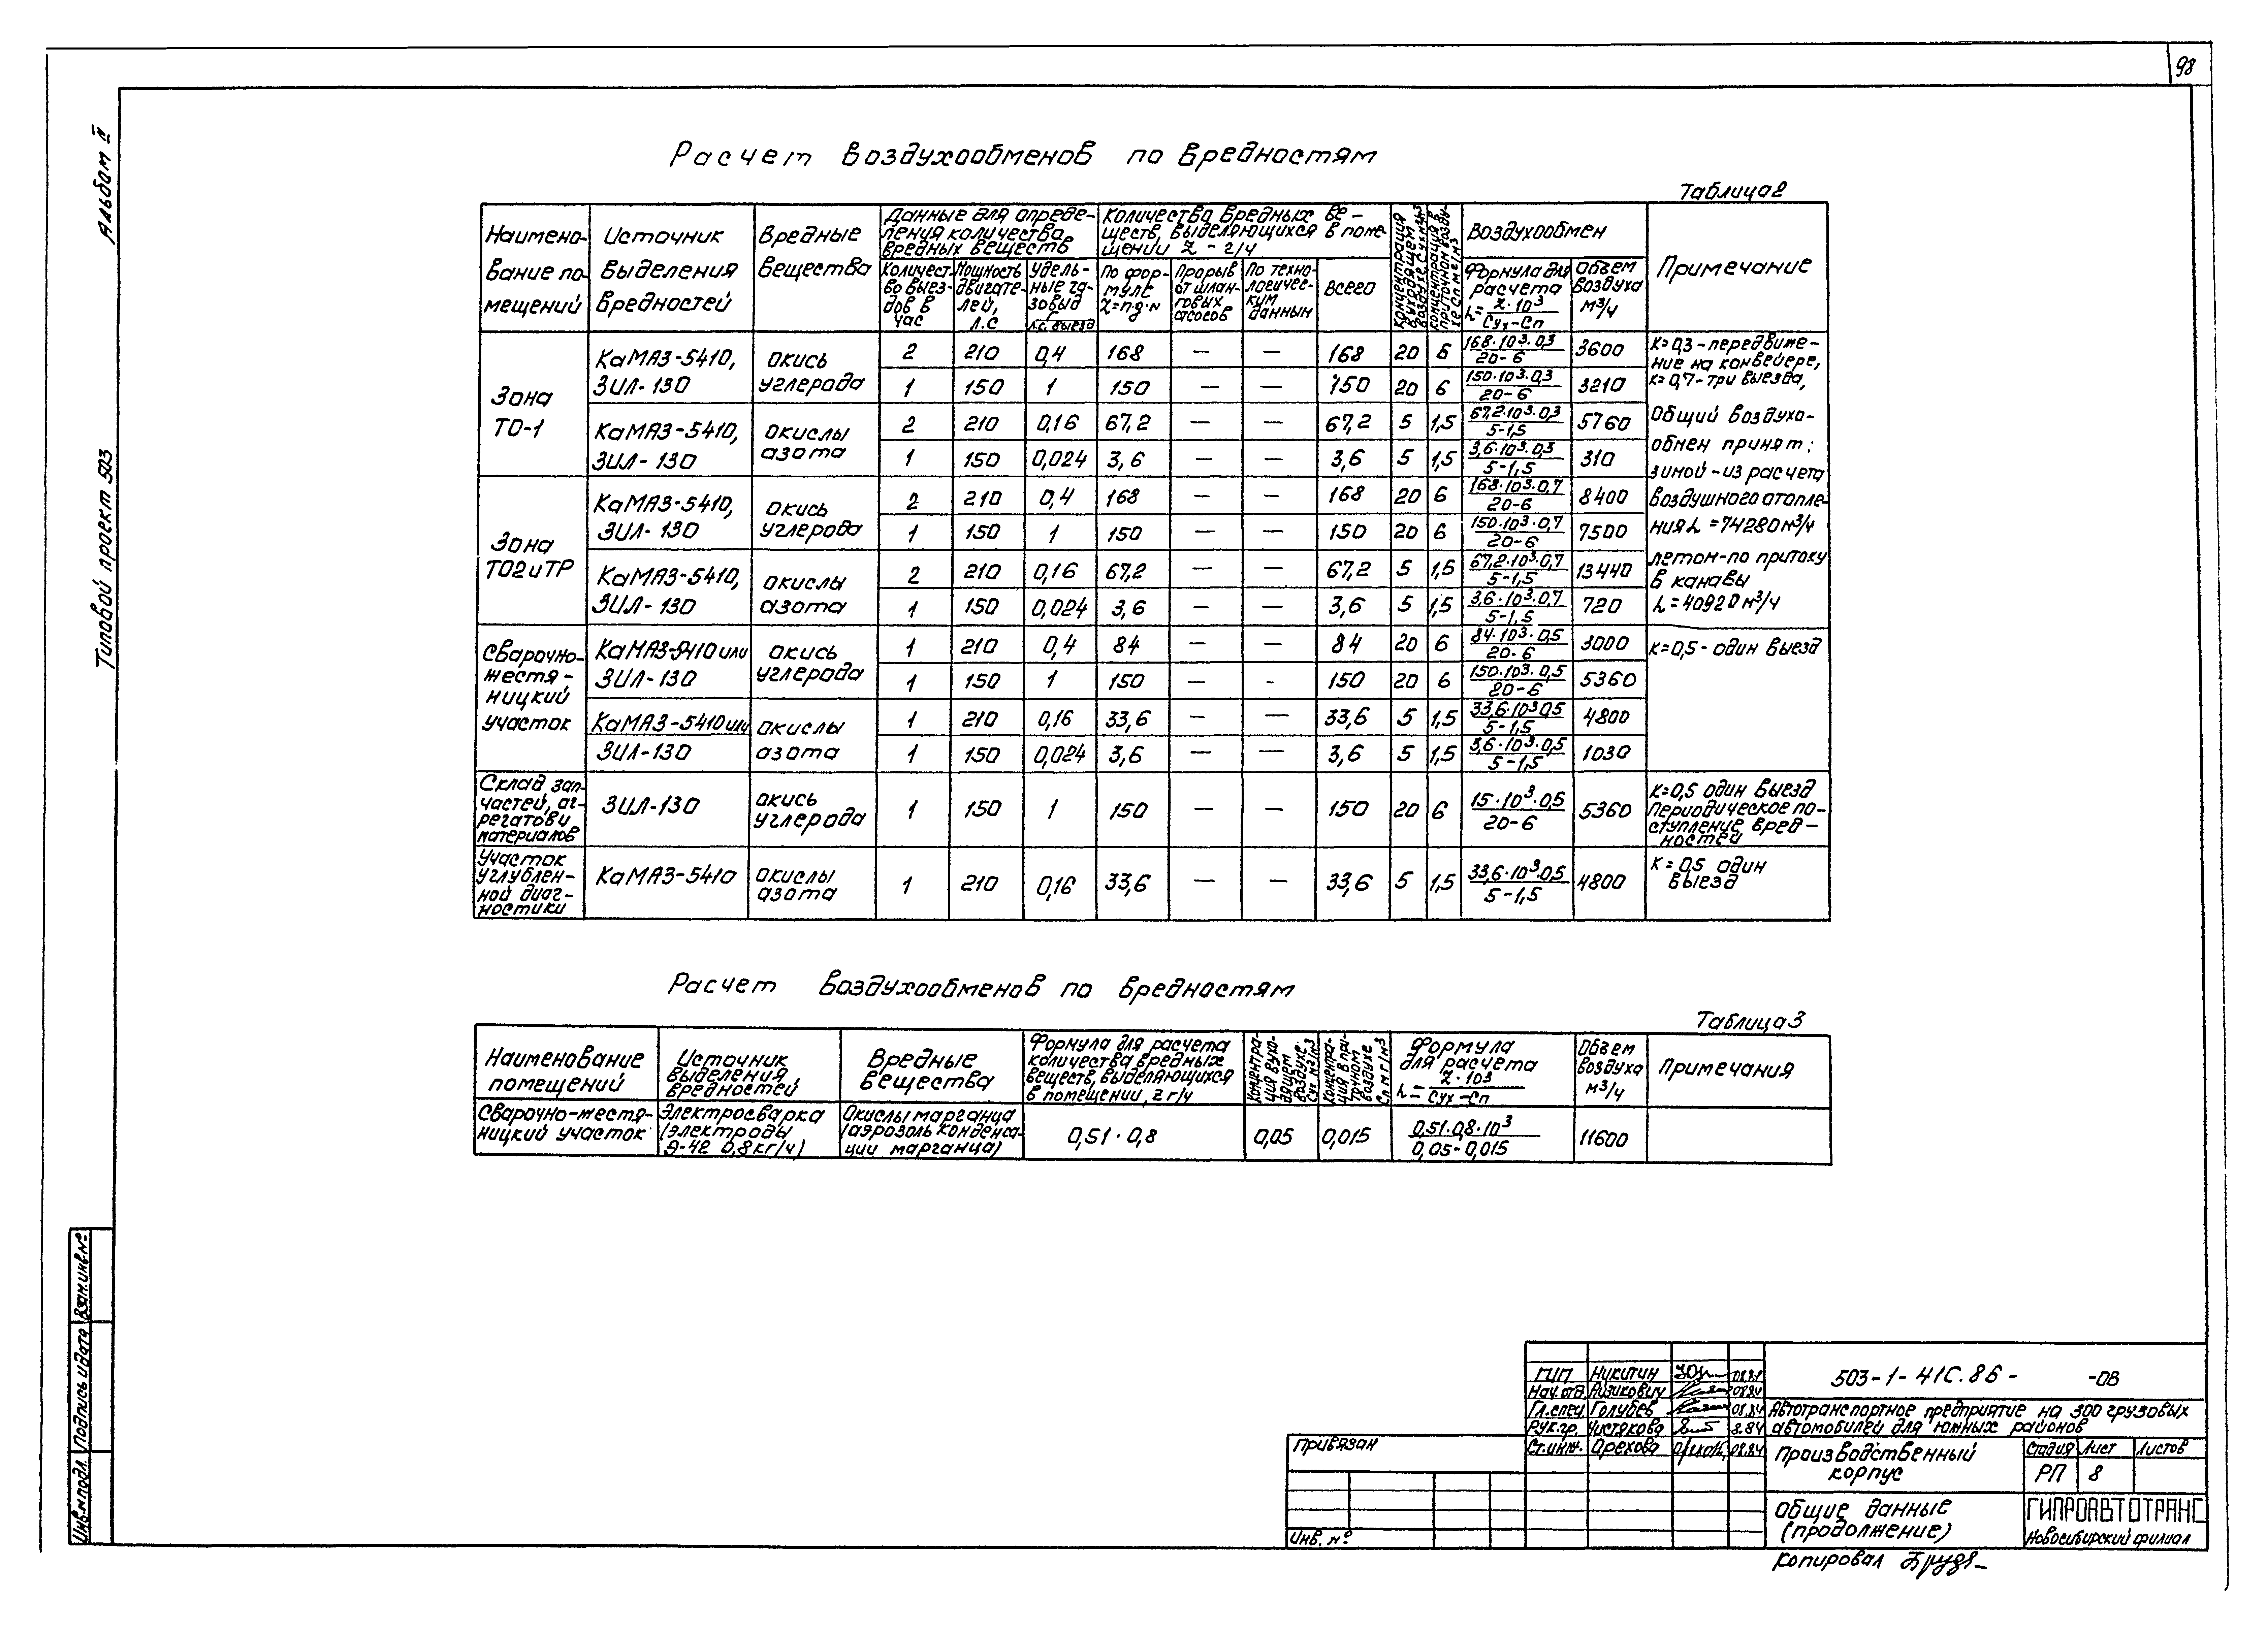 98
Альбом II
Типовой проект 503
Расчет воздухообменов по вредностям
Таблица 2
Наимено-
вание по-
мещений
Источник
выделения
вредностей
Вредные
вещества
Данные для опреде-
ления количества
вредных веществ
Количест-
во выез-
дов в
час
Мощность
двигате-
лей,
л.с
Удель-
ные га-
зовыд
г
л.с. выезд
Количества вредных ве-
ществ, выделяющихся в поме
щении Z - г/ч
По фор-
муле
Z=п.g.N
Прорыв
от шлан-
говых
отсосов
По техно-
логичес-
ким
данным
Всего
Концентрация
в уходящем
воздухе, Сух мг/м3
Концентрация в
приточном возду-
хе Сп мг/м3
Воздухообмен
Формула для
расчета
L= Z·10³ / Сух-Сп
Объем
воздуха
м³/ч
Примечание
Зона
ТО-1
КаМАЗ-5410,
ЗИЛ-130
окись
углерода
2 210 0,4 168 — — 168 20 6 168·10³·0,3 / 20-6 3600
1 150 1 150 — — 150 20 6 150·10³·0,3 / 20-6 3210
КаМАЗ-5410,
ЗИЛ-130
окислы
азота
2 210 0,16 67,2 — — 67,2 5 1,5 67,2·10³·0,3 / 5-1,5 5760
1 150 0,024 3,6 — — 3,6 5 1,5 3,6·10³·0,3 / 5-1,5 310
К=0,3-передвиже-
ние на конвейере,
К=0,7-три выезда,
Общий воздухо-
обмен принят:
зимой-из расчета
воздушного отопле-
ния L=74280м³/ч
летом-по притоку
в канавы
L=40920м³/ч
Зона
ТО2 и ТР
КаМАЗ-5410,
ЗИЛ-130
окись
углерода
2 210 0,4 168 — — 168 20 6 168·10³·0,7 / 20-6 8400
1 150 1 150 — — 150 20 6 150·10³·0,7 / 20-6 7500
КаМАЗ-5410,
ЗИЛ-130
окислы
азота
2 210 0,16 67,2 — — 67,2 5 1,5 67,2·10³·0,7 / 5-1,5 13440
1 150 0,024 3,6 — — 3,6 5 1,5 3,6·10³·0,7 / 5-1,5 720
Сварочно-
жестя-
ницкий
участок
КаМАЗ-5410 или
ЗИЛ-130
окись
углерода
1 210 0,4 84 — — 84 20 6 84·10³·0,5 / 20-6 3000
1 150 1 150 — - 150 20 6 150·10³·0,5 / 20-6 5360
КаМАЗ-5410 или
ЗИЛ-130
окислы
азота
1 210 0,16 33,6 — — 33,6 5 1,5 33,6·10³0,5 / 5-1,5 4800
1 150 0,024 3,6 — — 3,6 5 1,5 3,6·10³·0,5 / 5-1,5 1030
К=0,5- один выезд
Склад зап-
частей, аг-
регатов и
материалов
ЗИЛ-130
окись
углерода
1 150 1 150 — — 150 20 6 15·10³·0,5 / 20-6 5360
К=0,5 один выезд
периодическое по-
ступление вред-
ностей
Участок
углублен-
ной диаг-
ностики
КаМАЗ-5410
окислы
азота
1 210 0,16 33,6 — — 33,6 5 1,5 33,6·10³·0,5 / 5-1,5 4800
К=0,5 один
выезд
Расчет воздухообменов по вредностям
Таблица 3
Наименование
помещений
Источник
выделения
вредностей
Вредные
вещества
Формула для расчета
количества вредных
веществ, выделяющихся
в помещении, Z г/ч
Концентра-
ция в ухо-
дящем
воздухе
Сух мг/м3
Концентра-
ция в при-
точном
воздухе
Сп мг/м3
Формула
для расчета
L= Z·10³ / Сух-Сп
Объем
воздуха
м³/ч
Примечания
Сварочно-жестя-
ницкий участок
Электросварка
(электроды
Э-42 0,8кг/ч)
Окислы марганца
(аэрозоль конденса-
ции марганца)
0,51·0,8
0,05
0,015
0,51·0,8·10³ / 0,05-0,015
11600
Взам.инв.№
Подпись и дата
Инв.№подл.
Привязан
Инв. №
ГИП Никитин 08.84
Нач.отд. Айзикович 08.84
Гл.спец. Голубев 08.84
Рук.гр. Чистякова 8.84
Ст.инж. Орехова 08.84
503-1-41С.86- -ОВ
Автотранспортное предприятие на 300 грузовых
автомобилей для южных районов
Производственный
корпус
Стадия Лист Листов
РП 8
Общие данные
(продолжение)
ГИПРОАВТОТРАНС
Новосибирский филиал
Копировал